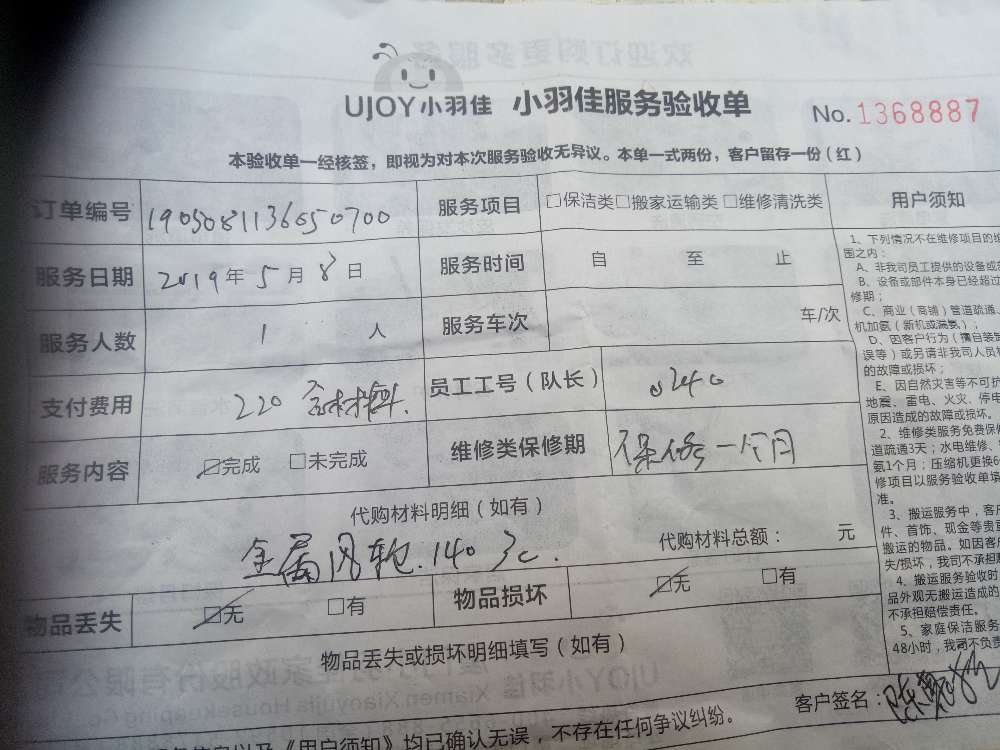 UJOY小羽佳 小羽佳服务验收单 No.1368887
本验收单一经核签，即视为对本次服务验收无异议。本单一式两份，客户留存一份（红）
订单编号 服务项目 □保洁类□搬家运输类□维修清洗类 用户须知
服务日期 2019年5月8日 服务时间 自 至 止
服务人数 1 人 服务车次 车/次
支付费用 220 含材料. 员工工号（队长） 0240
服务内容 ☑完成 □未完成 维修类保修期 保修一个月
代购材料明细（如有）
金属风轮.140 代购材料总额： 元
物品丢失 ☑无 □有 物品损坏 ☑无 □有
物品丢失或损坏明细填写（如有）
客户签名：
《用户须知》均已确认无误，不存在任何争议纠纷。
1、下列情况不在维修项目的
围之内：
A、非我司员工提供的设备或
B、设备或部件本身已经超过
修期；
C、商业（商铺）管道疏通、
机加氨（新机或漏氨）；
D、因客户行为（擅自装
误等）或另请非我司人员
的故障或损坏；
E、因自然灾害等不可抗
地震、雷电、火灾、停电
原因造成的故障或损坏。
2、维修类服务免费保
道疏通3天；水电维修、
氨1个月；压缩机更换6
修项目以服务验收单
准。
3、搬运服务中，客
件、首饰、现金等贵
搬运的物品。如因客
失/损坏，我司不承担
4、搬运服务验收时
品外观无搬运造成的
不承担赔偿责任。
5、家庭保洁服务
48小时，我司不负责